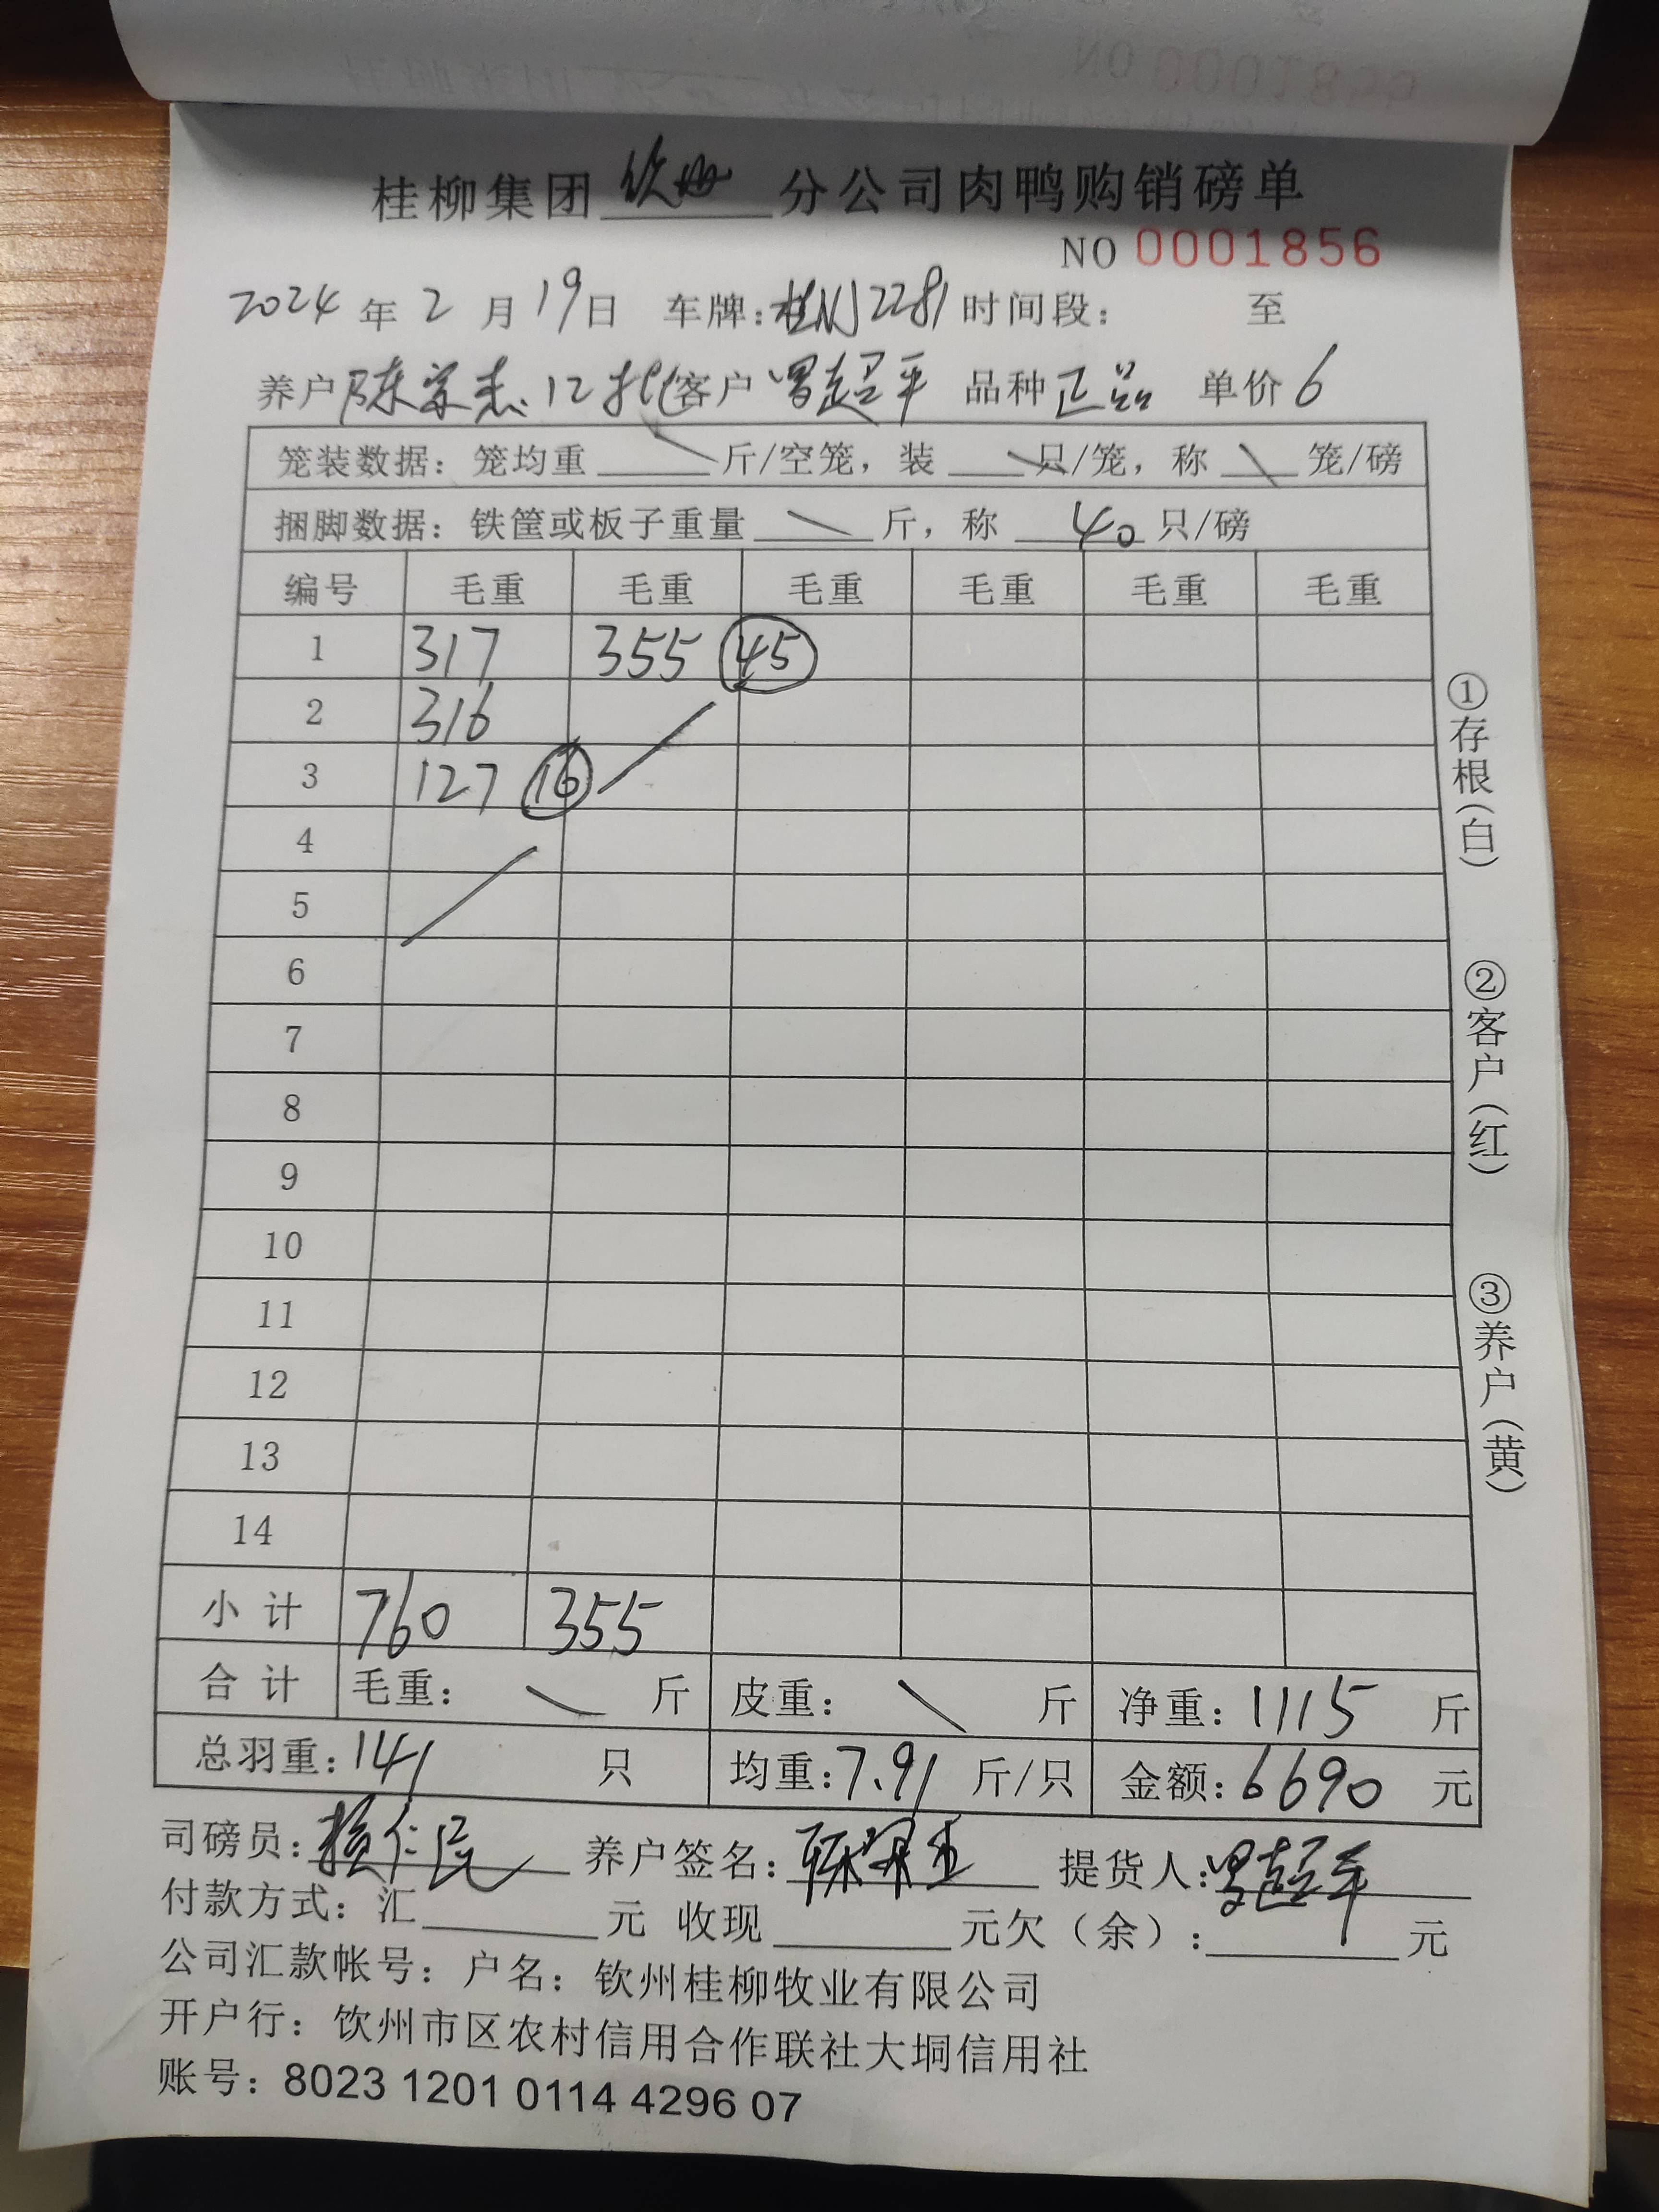 桂柳集团 钦州 分公司肉鸭购销磅单
NO 0001856
2024 年 2 月 19 日 车牌：桂NJ2281 时间段： 至
养户 陈荣志 12批 客户 曾超平 品种 正品 单价 6
笼装数据：笼均重 \ 斤/空笼，装 \ 只/笼，称 \ 笼/磅
捆脚数据：铁筐或板子重量 \ 斤，称 40 只/磅
编号 毛重 毛重 毛重 毛重 毛重 毛重
1 317 355 45
2 316
3 127 16
4
5
6
7
8
9
10
11
12
13
14
小计 760 355
合计 毛重： \ 斤 皮重： \ 斤 净重：1115 斤
总羽重：141 只 均重：7.91 斤/只 金额：6690 元
司磅员： 养户签名： 提货人：曾超平
付款方式：汇 元 收现 元欠（余）： 元
公司汇款帐号：户名：钦州桂柳牧业有限公司
开户行：钦州市区农村信用合作联社大垌信用社
账号：8023 1201 0114 4296 07
①存根（白）
②客户（红）
③养户（黄）